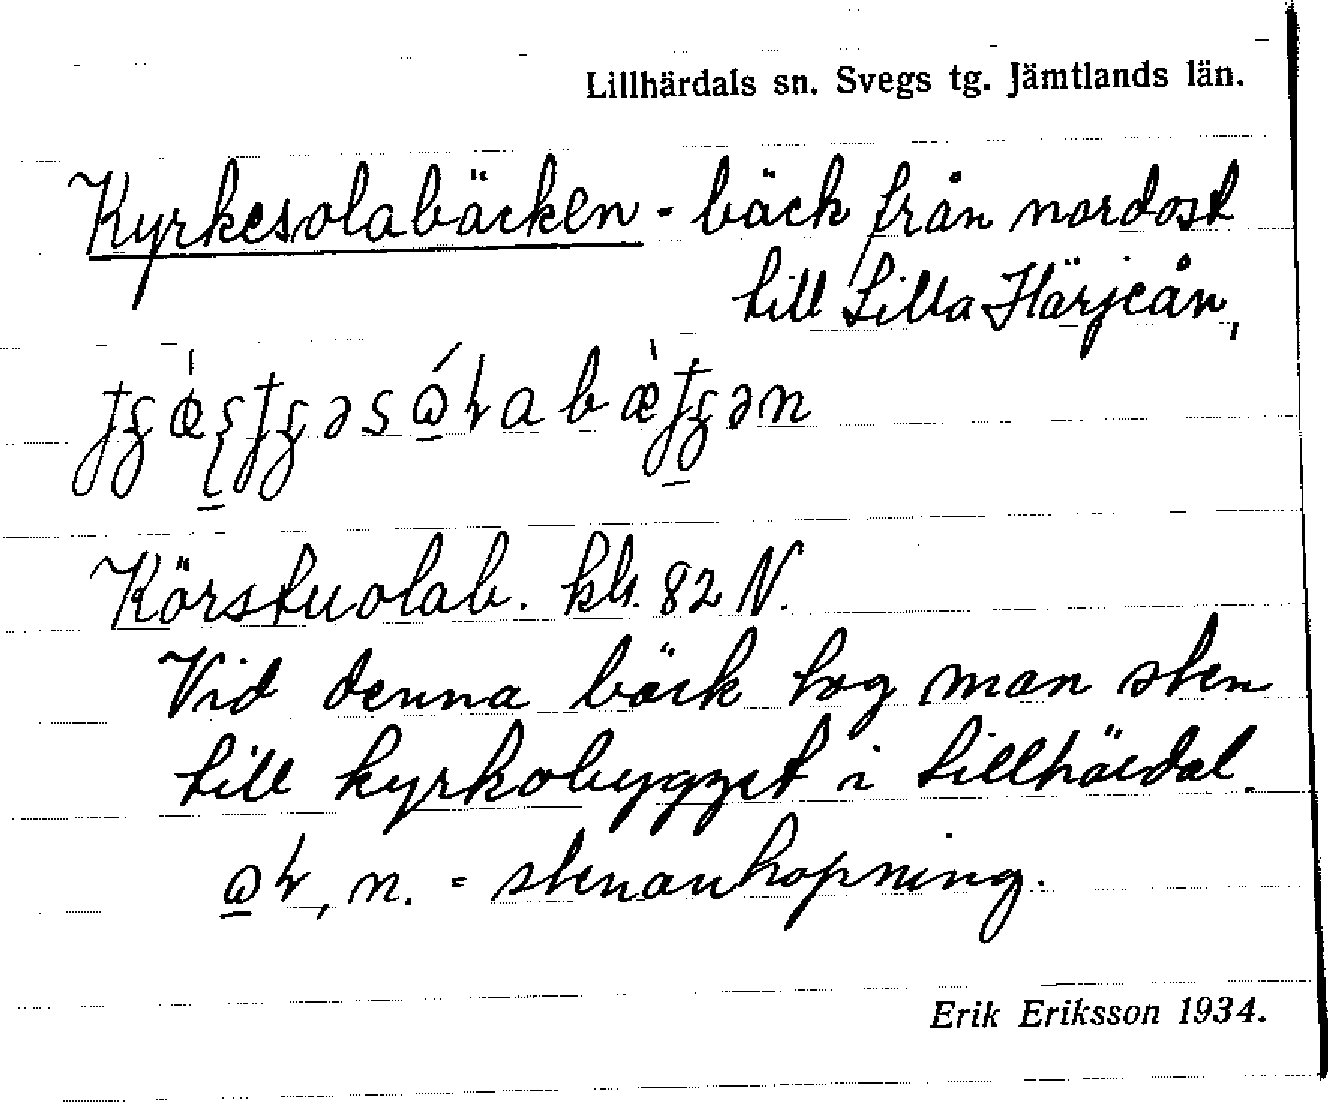 Lillhärdals sn. Svegs tg. Jämtlands län.
Kyrkesolabäcken - bäck från nordost
till Lilla Härjeån,
Körstuolab. kb. 82 N.
Vid denna bäck tog man sten
till kyrkobygget i Lillhärdal.
n. = stenanhopning.
Erik Eriksson 1934.